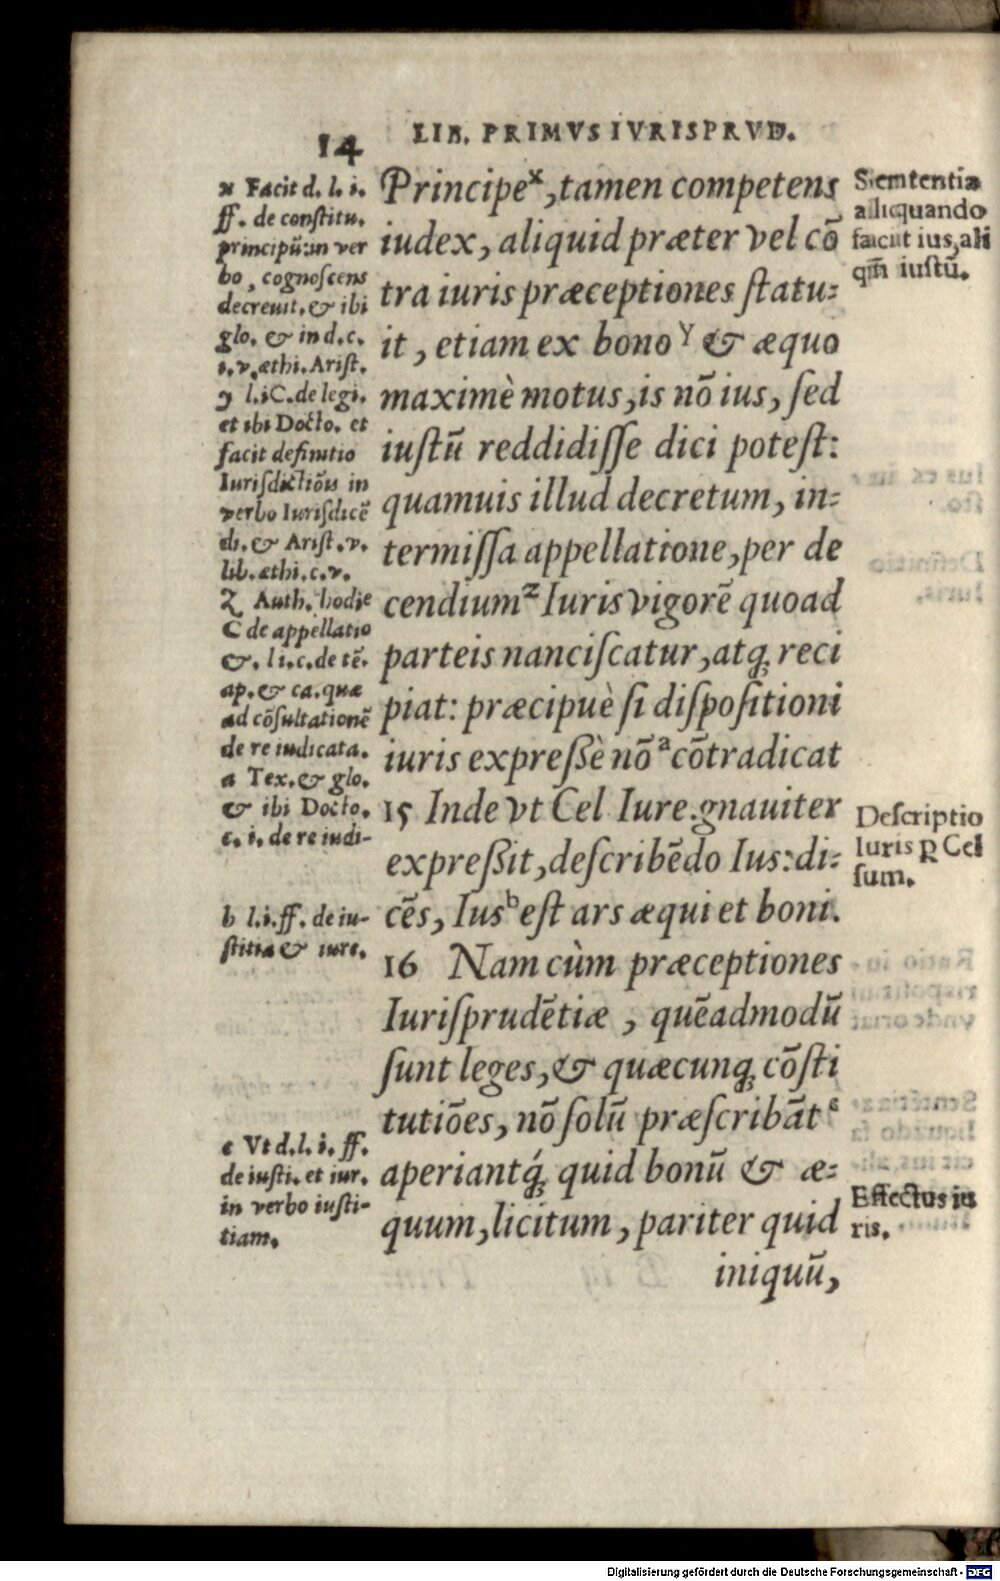 14
LIB. PRIMVS IVRISPRVD.
x Facit d. l. i.
ff. de conſtitu.
principū: in ver
bo, cognoſcens
decreuit, & ibi
glo. & in d. c.
i. v. æthi. Ariſt.
y l. i C. de legi.
et ibi Docto. et
facit definitio
Iuriſdictiōis in
verbo Iuriſdicē
di. & Ariſt. v.
lib. æthi. c. v.
z Auth. hodie
C de appellatio
&. l i. c. de tē.
ap. & ca. quæ
ad cōſultationē
de re iudicata.
a Tex. & glo.
& ibi Docto.
c. i. de re iudi-
b l. i. ff. de iu-
ſtitia & iure.
c Vt d. l. i. ff.
de iuſti. et iur.
in verbo iuſti-
tiam.
Principe x, tamen competens
iudex, aliquid præter vel cō
tra iuris præceptiones ſtatu:
it, etiam ex bono y & æquo
maximè motus, is nō ius, ſed
iuſtū reddidiſſe dici poteſt:
quamuis illud decretum, in:
termiſſa appellatione, per de
cendium z Iuris vigorē quoad
parteis nanciſcatur, atq; reci
piat: præcipuè ſi diſpoſitioni
iuris expreßè nō a cōtradicat
15 Inde vt Cel Iure. gnauiter
expreßit, deſcribēdo Ius: di:
cēs, Ius b eſt ars æqui et boni.
16 Nam cùm præceptiones
Iuriſprudētiæ, quēadmodū
ſunt leges, & quæcunq; cōſti
tutiōes, nō ſolū præſcribāt c
aperiantq́; quid bonū & æ:
quum, licitum, pariter quid
iniquū,
Sententia
aliquando
facit ius, ali
qn̄ iuſtū.
Deſcriptio
Iuris p̱ Cel
ſum.
Effectus iu
ris.
Digitalisierung gefördert durch die Deutsche Forschungsgemeinschaft - DFG